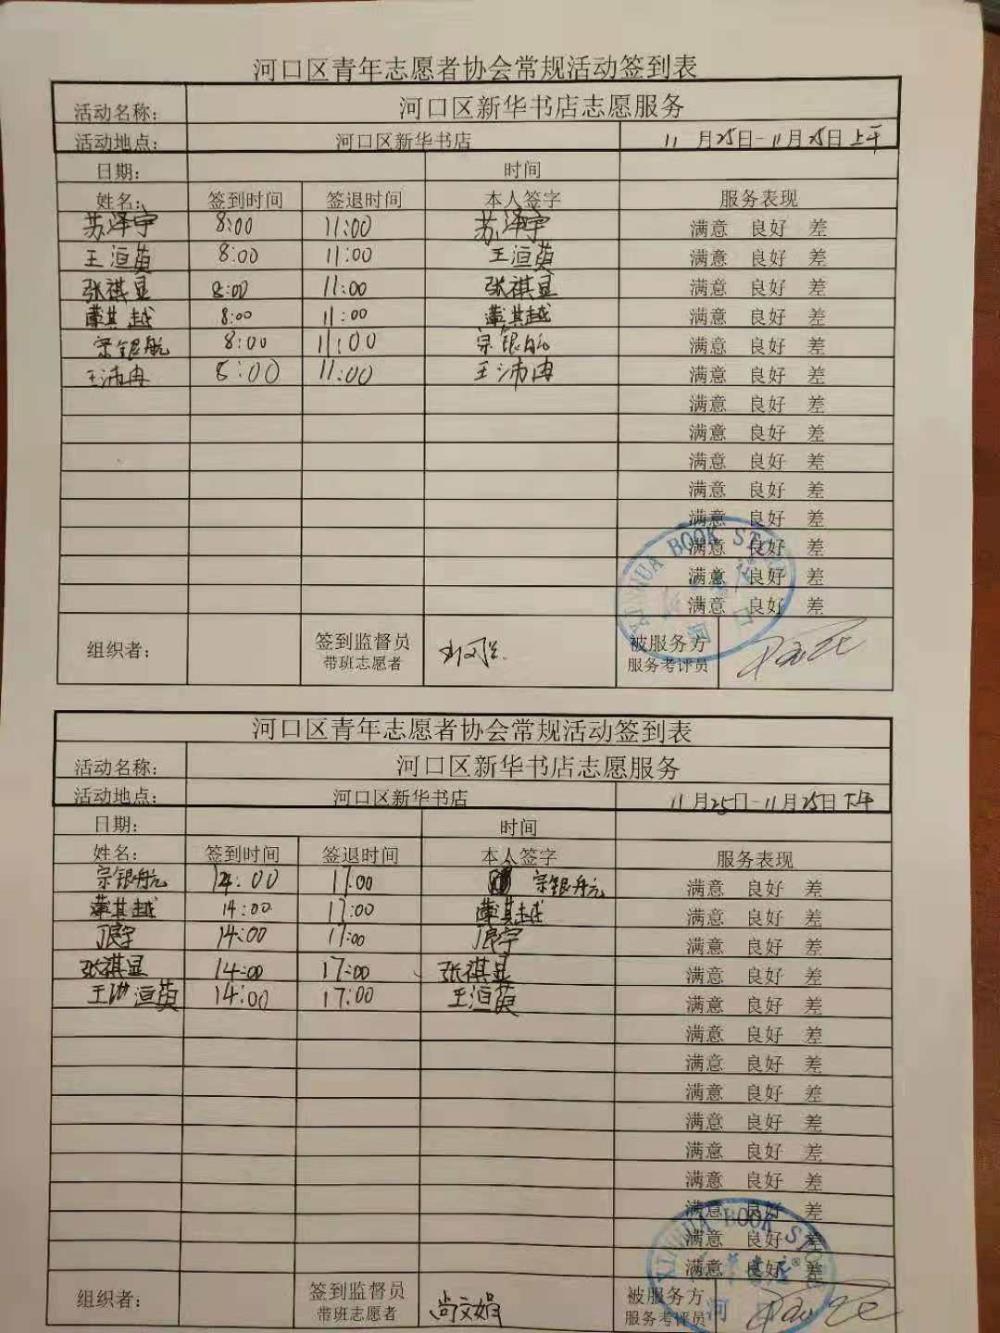 河口区青年志愿者协会常规活动签到表
活动名称： 河口区新华书店志愿服务
活动地点： 河口区新华书店 11月25日-11月25日上午
日期： 时间
姓名： 签到时间 签退时间 本人签字 服务表现
苏泽宇 8:00 11:00 苏泽宇 满意 良好 差
王洹萸 8:00 11:00 王洹萸 满意 良好 差
张祺显 8:00 11:00 张祺显 满意 良好 差
其越 8:00 11:00 其越 满意 良好 差
宗银航 8:00 11:00 宗银航 满意 良好 差
王沛冉 8:00 11:00 王沛冉 满意 良好 差
满意 良好 差
满意 良好 差
满意 良好 差
满意 良好 差
满意 良好 差
满意 良好 差
满意 良好 差
满意 良好 差
XINHUA BOOK STORE
河口
组织者： 签到监督员 被服务方
带班志愿者 服务考评员
河口区青年志愿者协会常规活动签到表
活动名称： 河口区新华书店志愿服务
活动地点： 河口区新华书店 11月25日-11月25日下午
日期： 时间
姓名： 签到时间 签退时间 本人签字 服务表现
宗银航 14:00 17:00 宗银航 满意 良好 差
其越 14:00 17:00 其越 满意 良好 差
宇 14:00 17:00 宇 满意 良好 差
张祺显 14:00 17:00 张祺显 满意 良好 差
王洹萸 14:00 17:00 王洹萸 满意 良好 差
满意 良好 差
满意 良好 差
满意 良好 差
满意 良好 差
满意 良好 差
满意 良好 差
满意 良好 差
满意 良好 差
满意 良好 差
XINHUA BOOK STORE
河
组织者： 签到监督员 尚文娟 被服务方
带班志愿者 服务考评员